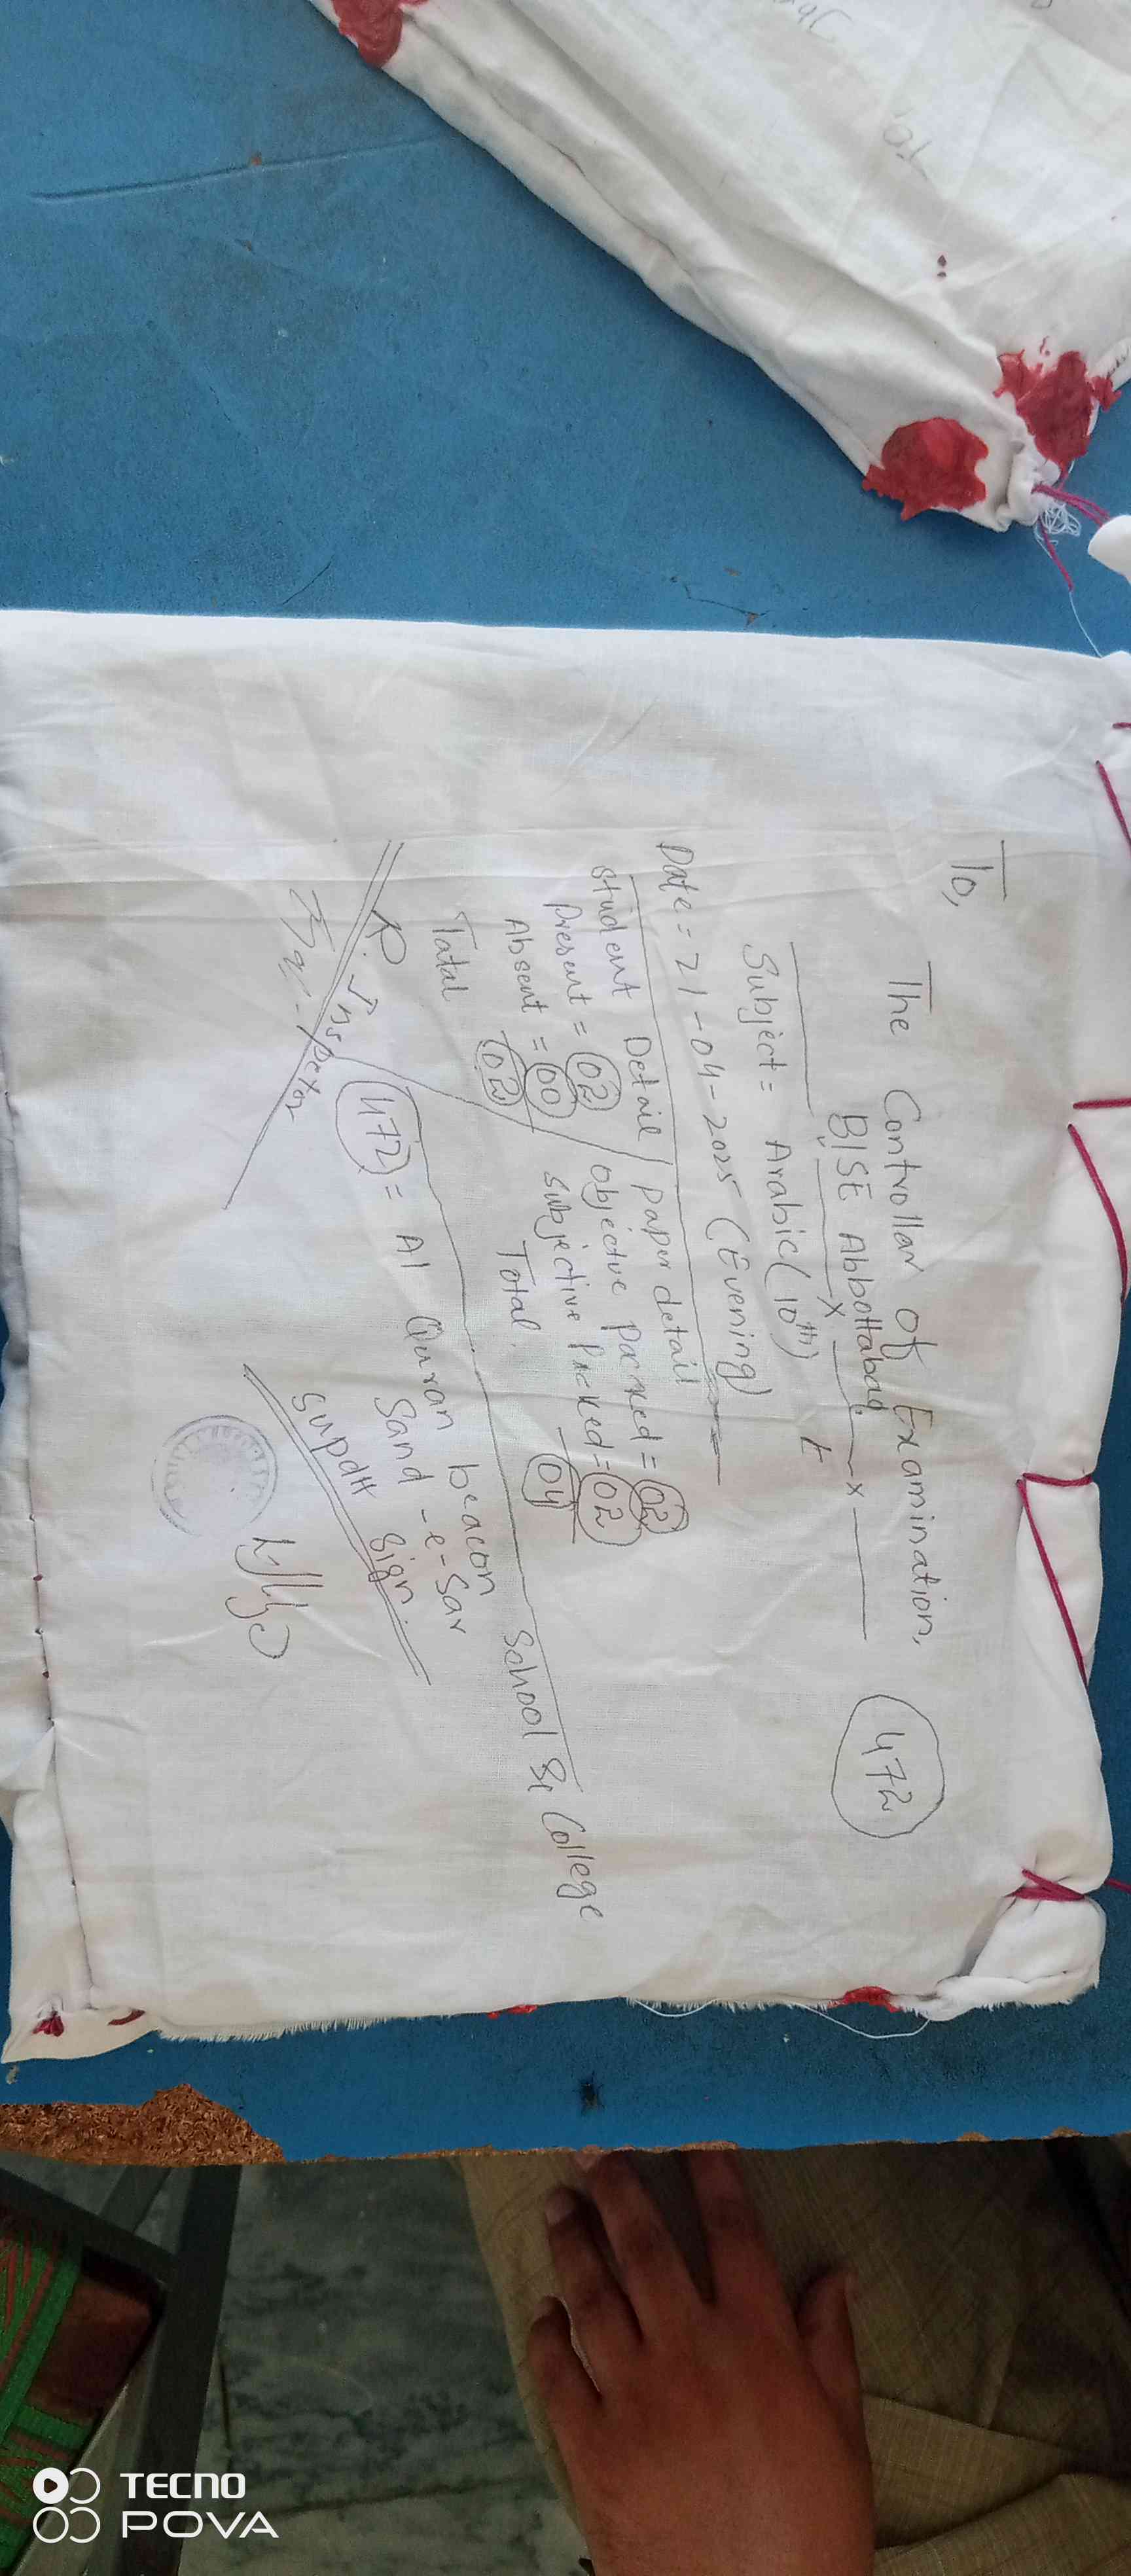 To,
The Controllar of Examination,
BISE Abbottabad.
472
x x
Subject = Arabic (10th)
Date = 21-04-2025 (Evening)
Student Detail
Present = 02
Absent = 00
Tatal 02
paper detail
objective packed = 02
Subjective Packed = 02
Total. 04
472 = Al Quran beacon School & College
Sand-e-Sar
R. Inspector
Supdtt Sign.
TECNO
POVA